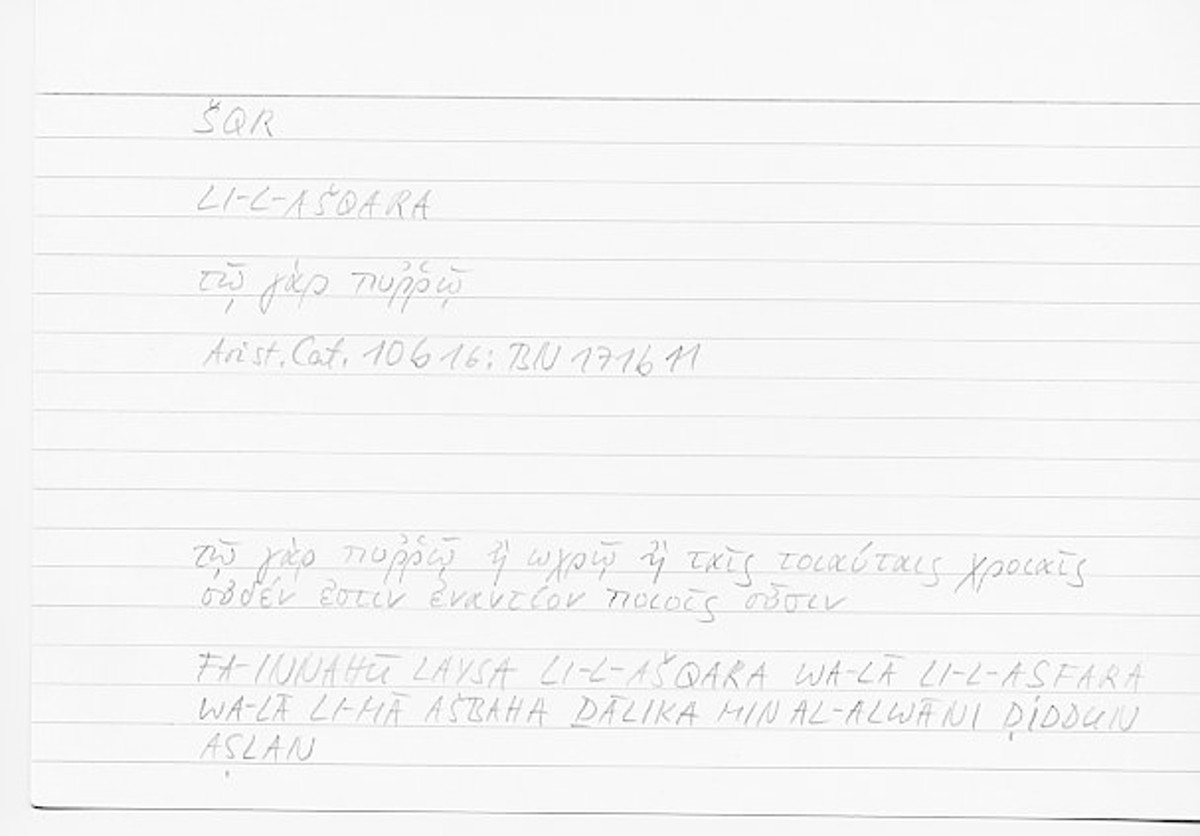 ŠQR
LI-L-AŠQARA
τῷ γὰρ πυῤῥῷ
Arist. Cat. 10b16: BN 171b11
τῷ γὰρ πυῤῥῷ ἢ ὠχρῷ ἢ ταῖς τοιαύταις χροιαῖς
οὐδέν ἐστιν ἐναντίον ποιοῖς οὖσιν
FA-INNAHŪ LAYSA LI-L-AŠQARA WA-LĀ LI-L-ASFARA
WA-LĀ LI-MĀ AŠBAHA ḎĀLIKA MIN AL-ALWĀNI ḌIDDUN
AṢLAN